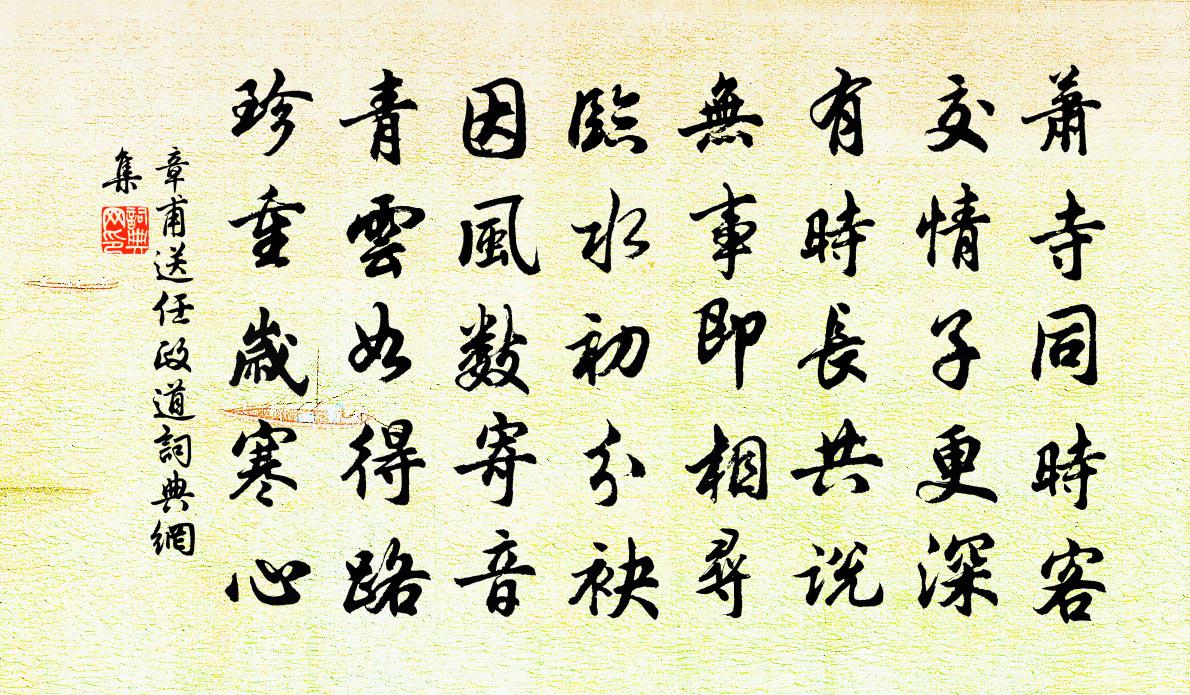 蕭寺同時客
交情子更深
有時長共説
無事即相尋
臨水初分袂
因風數寄音
青雲如得路
珍重歲寒心
章甫送任政道詞典網
集
詞典
网印